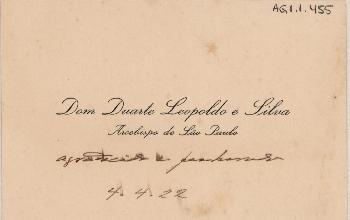 AG.1.1.455
Dom Duarte Leopoldo e Silva
Arcebispo de São Paulo
agradece e penhorado
4.4.22